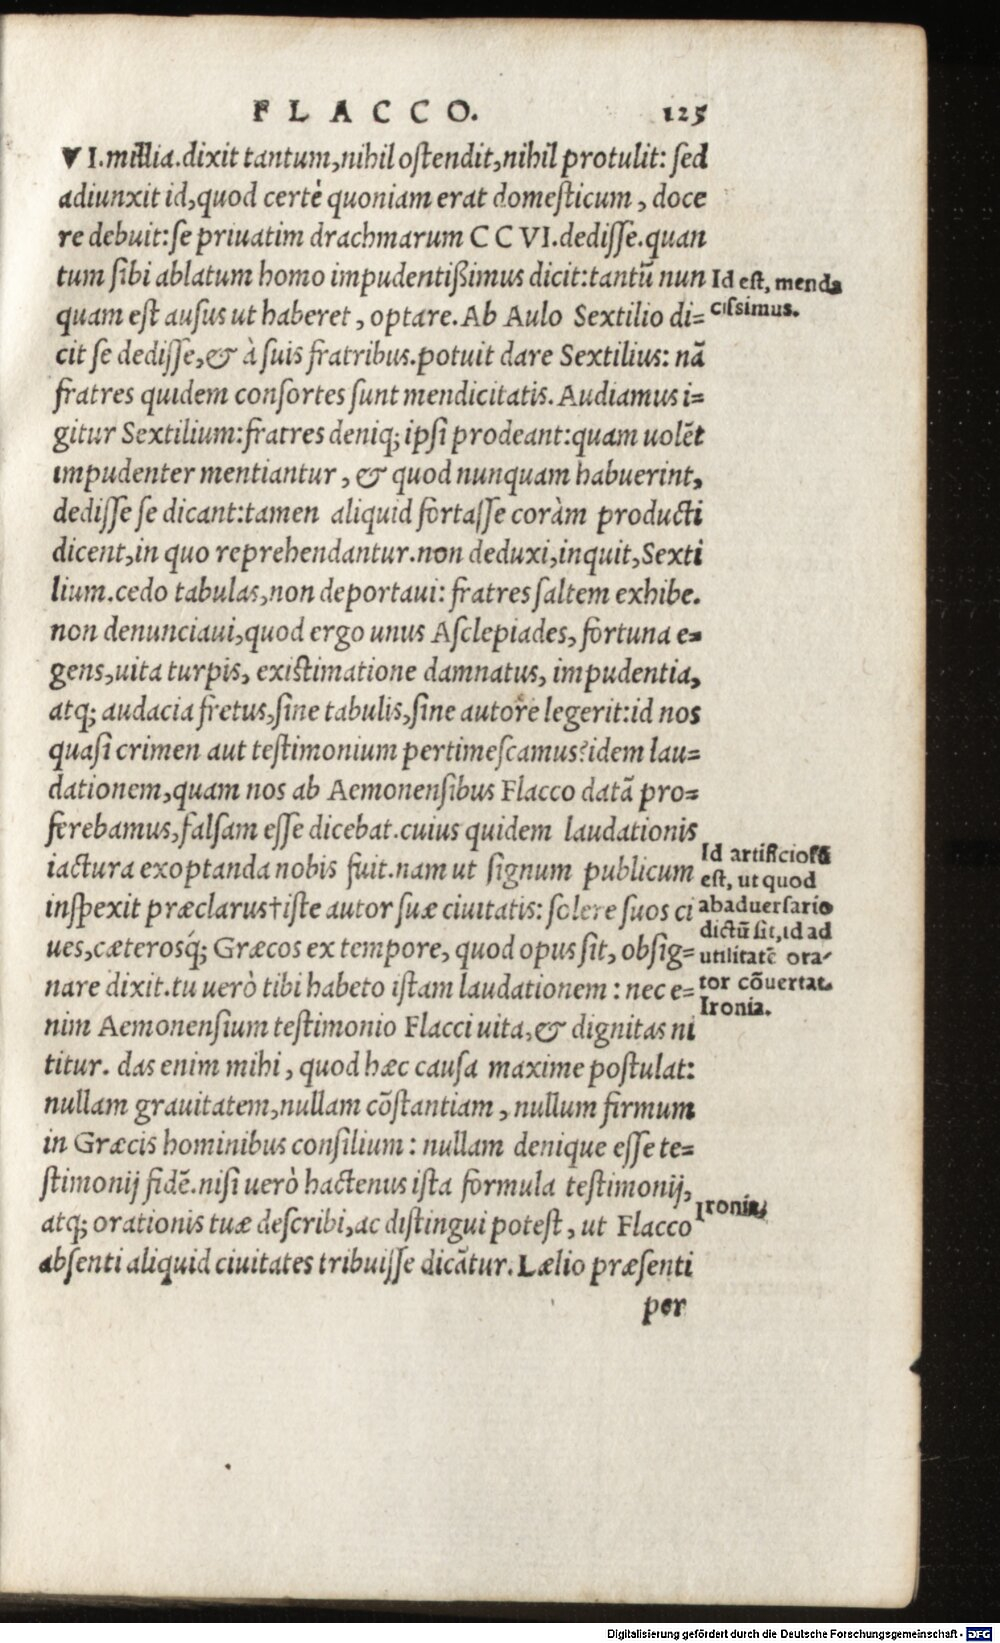 FLACCO. 125
VI.millia.dixit tantum,nihil ostendit,nihil protulit: sed
adiunxit id,quod certè quoniam erat domesticum, doce
re debuit:se priuatim drachmarum CCVI.dedisse.quan
tum sibi ablatum homo impudentißimus dicit:tantū nun
quam est ausus ut haberet, optare. Ab Aulo Sextilio di=
cit se dedisse,& à suis fratribus.potuit dare Sextilius: nā
fratres quidem consortes sunt mendicitatis. Audiamus i=
gitur Sextilium:fratres deniq; ipsi prodeant:quam uolēt
impudenter mentiantur, & quod nunquam habuerint,
dedisse se dicant:tamen aliquid fortasse coràm producti
dicent,in quo reprehendantur.non deduxi,inquit,Sexti
lium.cedo tabulas,non deportaui: fratres saltem exhibe.
non denunciaui,quod ergo unus Asclepiades, fortuna e=
gens,uita turpis, existimatione damnatus, impudentia,
atq; audacia fretus,sine tabulis,sine autore legerit:id nos
quasi crimen aut testimonium pertimescamus?idem lau=
dationem,quam nos ab Aemonensibus Flacco datā pro=
ferebamus,falsam esse dicebat.cuius quidem laudationis
iactura exoptanda nobis fuit.nam ut signum publicum
inspexit præclarus†iste autor suæ ciuitatis: solere suos ci
ues,cæterosq́; Græcos ex tempore, quod opus sit, obsig=
nare dixit.tu uerò tibi habeto istam laudationem: nec e=
nim Aemonensium testimonio Flacci uita,& dignitas ni
titur. das enim mihi, quod hæc causa maxime postulat:
nullam grauitatem,nullam cōstantiam, nullum firmum
in Græcis hominibus consilium: nullam denique esse te=
stimonij fidē.nisi uerò hactenus ista formula testimonij,
atq; orationis tuæ describi,ac distingui potest, ut Flacco
absenti aliquid ciuitates tribuisse dicātur. Lælio præsenti
per
Id est, menda
cissimus.
Id artificiosū
est, ut quod
abaduersario
dictū sit,id ad
utilitatē ora-
tor cōuertat.
Ironia.
Ironia.
Digitalisierung gefördert durch die Deutsche Forschungsgemeinschaft - DFG